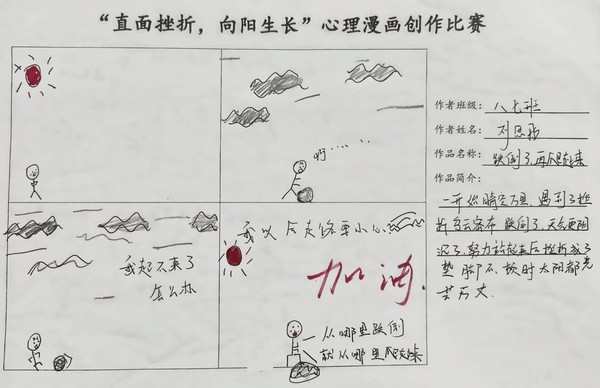 “直面挫折，向阳生长”心理漫画创作比赛
啊……
我起不来了
怎么办
我以后走路要小心
加油
从哪里跌倒
就从哪里爬起来
作者班级：八七班
作者姓名：刘思
作品名称：跌倒了，再爬起来
作品简介：
一开始晴空万里，遇到了挫
折乌云密布 跌倒了，天会更阴
沉了，努力站起来后挫折成了
垫脚石，顿时太阳都光
芒万丈.